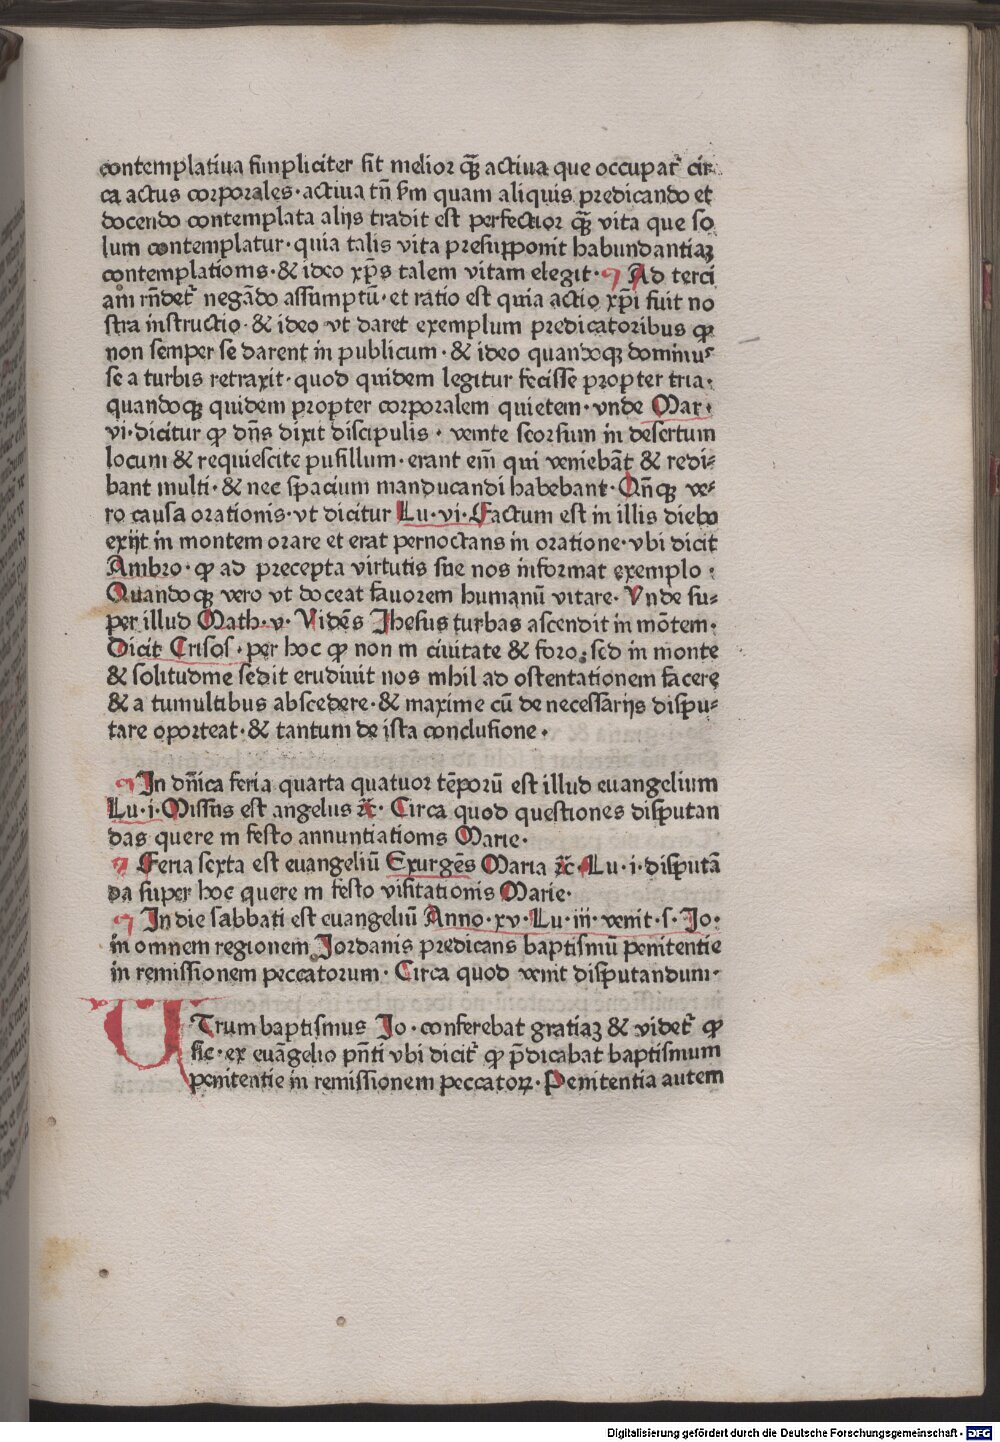 contemplatiua simpliciter sit melior qȝ̃ actiua que occupat᷑ cir-
ca actus corporales·actiua tñ ẜm quam aliquis predicando et
docendo contemplata alijs tradit est perfectior qȝ̃ vita que so
lum contemplatur·quia talis vita presupponit habundantiaȝ
contemplationis·& ideo xp̃s talem vitam elegit·¶ Ad terci
am rñdet᷑ negãdo assumptũ·et ratio est quia actio xp̃i fuit no
stra instructio·& ideo vt daret exemplum predicatoribus ꝙ
non semper se darent in publicum·& ideo quandoqȝ dominus
se a turbis retraxit·quod quidem legitur fecisse propter tria·
quandoqȝ quidem propter corporalem quietem·vnde Mar·
vi·dicitur ꝙ dñs dixit discipulis·venite seorsum in desertum
locum & requiescite pusillum·erant eni᷑ qui veniebãt & redi-
bant multi·& nec spacium manducandi habebant·Qñqȝ ve-
ro causa orationis·vt dicitur Lu·vi·Factum est in illis diebꝰ
exijt in montem orare et erat pernoctans in oratione·vbi dicit
Ambro·ꝙ ad precepta virtutis sue nos informat exemplo·
Quandoqȝ vero vt doceat fauorem humanũ vitare·Vnde su-
per illud Math·v·Vidẽs Jhesus turbas ascendit in mõtem·
Dicit Crisos·per hoc ꝙ non in ciuitate & foro·sed in monte
& solitudine sedit erudiuit nos nihil ad ostentationem facere
& a tumultibus abscedere·& maxime cũ de necessarijs dispu-
tare oporteat·& tantum de ista conclusione·
¶ In dñica feria quarta quatuor tẽporũ est illud euangelium
Lu·i·Missus est angelus ⁊c̃·Circa quod questiones disputan
das quere in festo annuntiationis Marie·
¶ Feria sexta est euangeliũ Exurgẽs Maria ⁊c̃·Lu·i·disputã
da super hoc quere in festo visitationis Marie·
¶ In die sabbati est euangeliũ Anno·xv·Lu·iii·venit·s·Jo·
in omnem regionem Jordanis predicans baptismũ penitentie
in remissionem peccatorum·Circa quod venit disputandum·
VTrum baptismus Jo·conferebat gratiaȝ & videt᷑ ꝙ
sic·ex euãgelio pñti vbi dicit᷑ ꝙ p̃dicabat baptismum
penitentie in remissionem peccatoꝝ·Penitentia autem
Digitalisierung gefördert durch die Deutsche Forschungsgemeinschaft - DFG